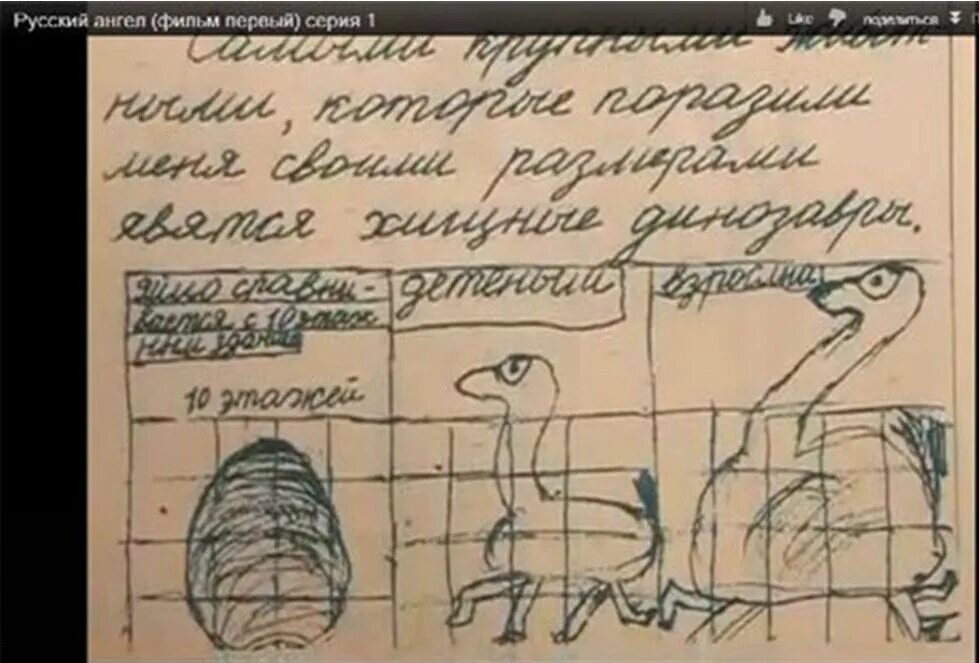 Русский ангел (фильм первый) серия 1
Like
поделиться
Самыми крупными живот
ными, которые поразили
меня своими размерами
явятся хищные динозавры.
яйцо сравни-
вается с 10 этаж
ным здание
10 этажей
детеныш
взрослый